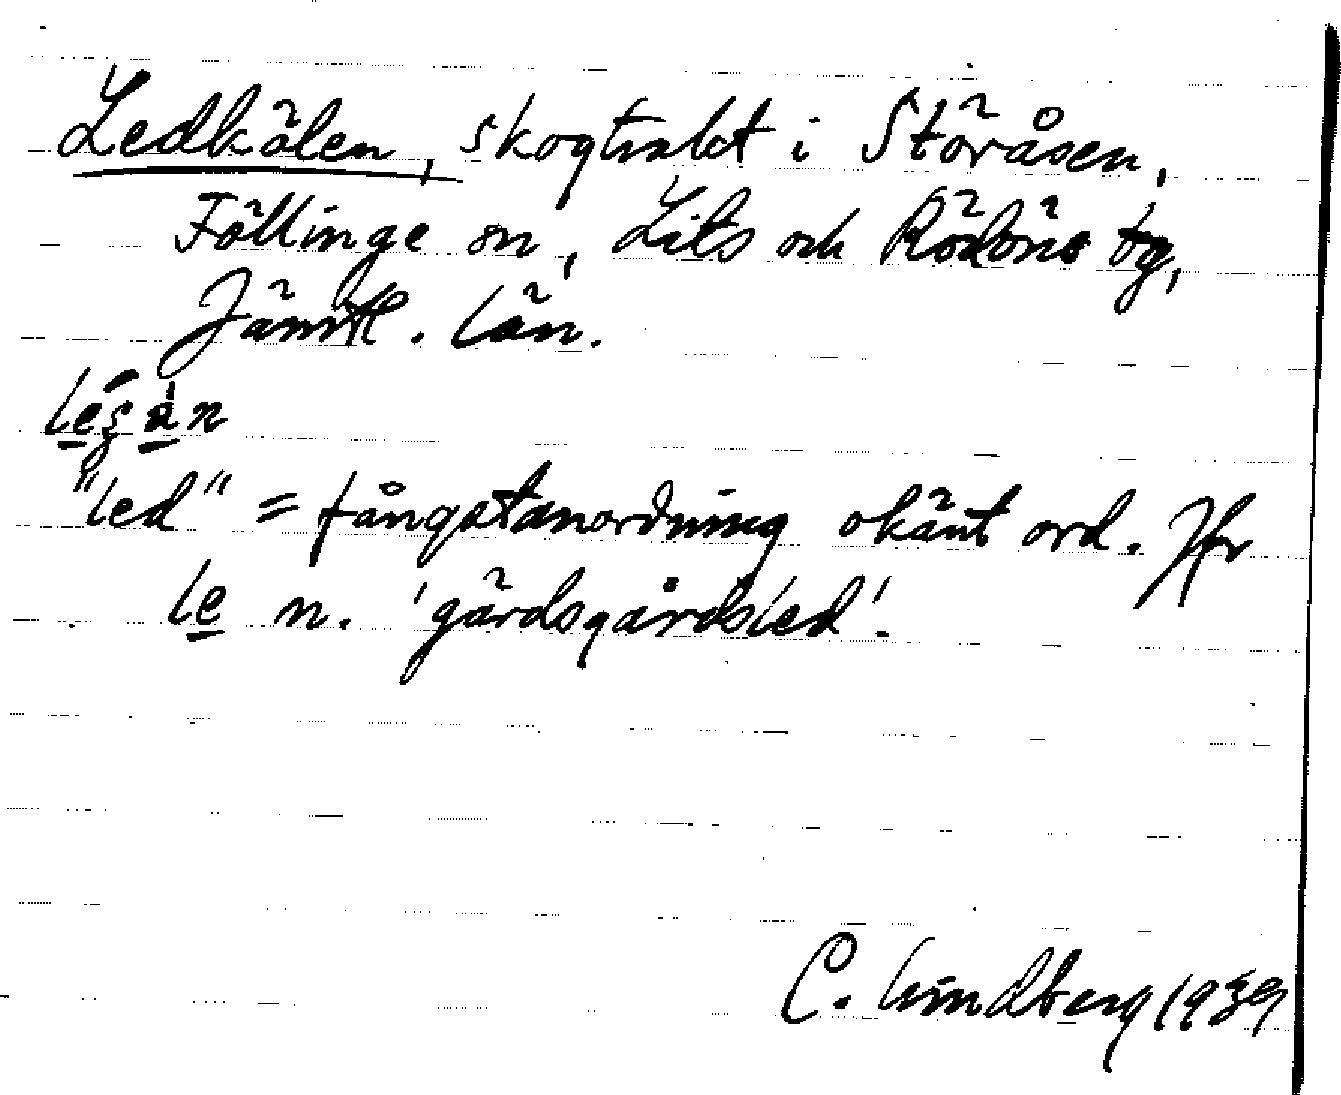 Ledkölen, skogtrakt i Storåsen,
Föllinge sn, Lits och Rödöns tg,
Jämtl. län.
"led" = fångstanordning okänt ord. Jfr
le n. 'gärdsgårdsled'.
C. Lindberg 1939